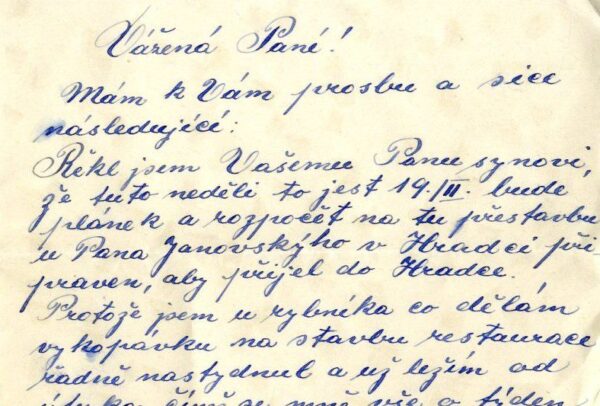 Vážená Paní!
Mám k Vám prosbu a sice
následující:
Řékl jsem Vašemu Panu synovi,
že tuto neděli to jest 19./II. bude
plánek a rozpočět na tu přestavbu
u Pana Janovskýho v Hradci při-
praven, aby přijel do Hradce.
Protože jsem u rybníka co dělám
vykopávku na stavbu restaurace
řádně nastydnul a už ležím od
čímž se mně vše o týden